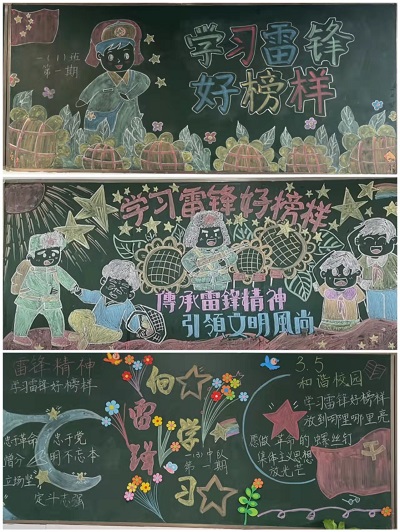 学习雷锋
好榜样
第一期
学习雷锋好榜样
傳承雷鋒精神
引領文明風尚
雷锋精神
学习雷锋好榜样
忠于革命 忠于党
明不忘本
立场坚
定斗志强
向
雷锋
学习
第一期
3.5
和谐校园
学习雷锋好榜样
放到哪里哪里亮
愿做革命的螺丝钉
集体主义思想
放光芒